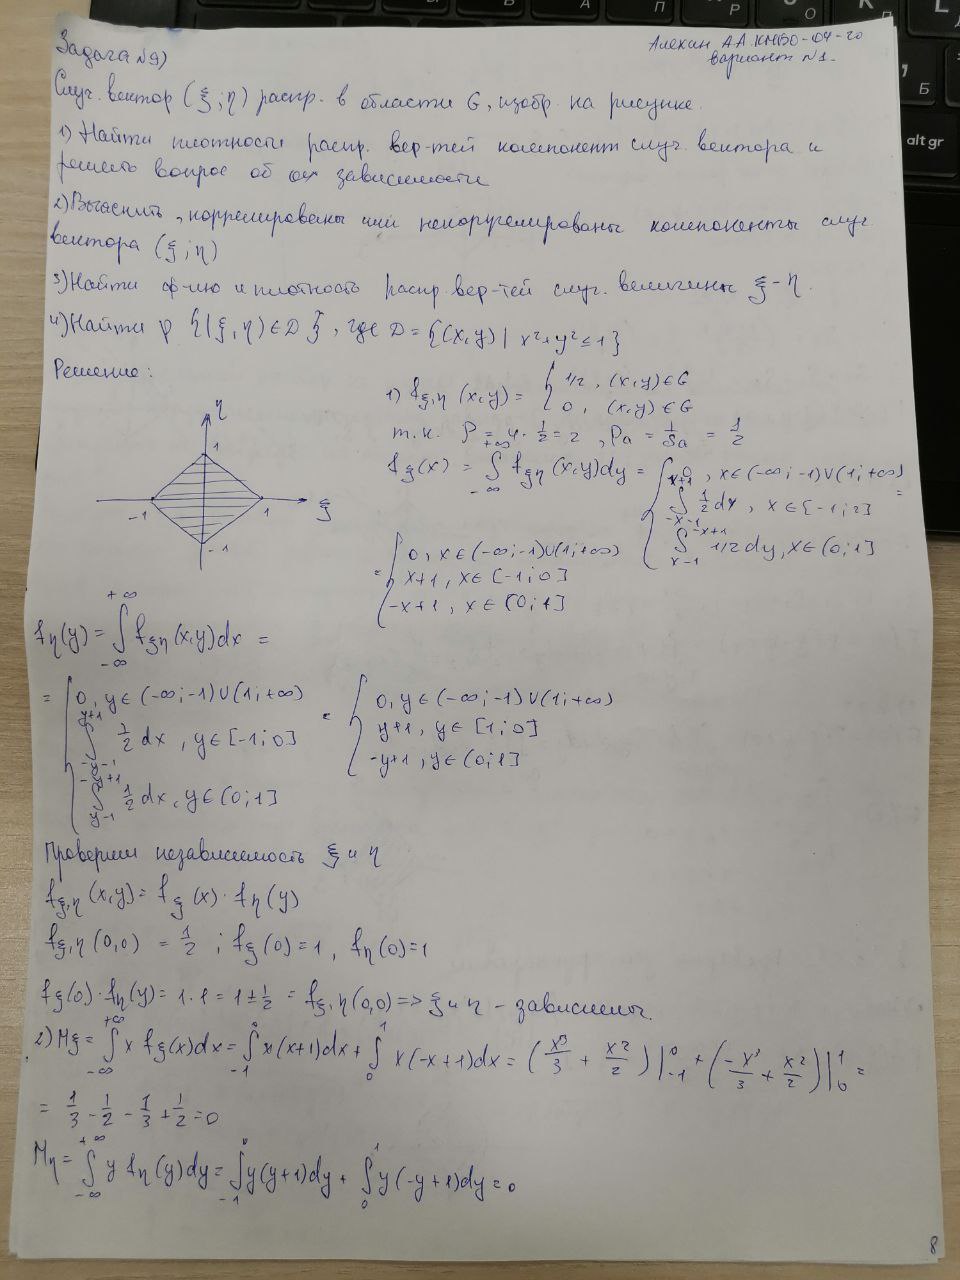 Задача №9)
Алехин А.А. КМБО-04-20
вариант №1.
Случ. вектор (ξ;η) распр. в области G, изобр. на рисунке.
1) Найти плотности распр. вер-тей компонент случ. вектора и
решить вопрос об их зависимости
2) Выяснить, коррелированы или некоррелированы компоненты случ.
вектора (ξ;η)
3) Найти ф-ию и плотность распр. вер-тей случ. величины ξ-η.
4) Найти P{|ξ,η)∈D}, где D={(x,y)| x²+y²≤1}
Решение:
η
1
-1
1
ξ
-1
1) f_{ξ,η}(x,y) = { 1/2, (x,y)∈G
0, (x,y)∈G
т.к. P = 4·1/2 = 2, Pa = 1/Sa = 1/2
f_ξ(x) = ∫_{-∞}^{+∞} f_{ξη}(x,y)dy = { 0, x∈(-∞;-1)∪(1;+∞)
∫_{-x-1}^{x+1} 1/2 dx, x∈[-1;2]
∫_{x-1}^{-x+1} 1/2 dy, x∈(0;1] =
= { 0, x∈(-∞;-1)∪(1;+∞)
x+1, x∈[-1;0]
-x+1, x∈(0;1]
f_η(y) = ∫_{-∞}^{+∞} f_{ξη}(x,y)dx =
= { 0, y∈(-∞;-1)∪(1;+∞)
∫_{-y-1}^{y+1} 1/2 dx, y∈[-1;0]
∫_{y-1}^{-y+1} 1/2 dx, y∈(0;1]
= { 0, y∈(-∞;-1)∪(1;+∞)
y+1, y∈[1;0]
-y+1, y∈(0;1]
Проверим независимость ξ и η
f_{ξ,η}(x,y) = f_ξ(x)·f_η(y)
f_{ξ,η}(0,0) = 1/2; f_ξ(0)=1, f_η(0)=1
f_ξ(0)·f_η(y) = 1·1 = 1 ≠ 1/2 = f_{ξ,η}(0,0) => ξ и η - зависимы.
2) Mξ = ∫_{-∞}^{+∞} x f_ξ(x)dx = ∫_{-1}^{0} x(x+1)dx + ∫_{0}^{1} x(-x+1)dx = (x³/3 + x²/2)|_{-1}^{0} + (-x³/3 + x²/2)|_{0}^{1} =
= 1/3 - 1/2 - 1/3 + 1/2 = 0
Mη = ∫_{-∞}^{+∞} y f_η(y)dy = ∫_{-1}^{0} y(y+1)dy + ∫_{0}^{1} y(-y+1)dy = 0
8